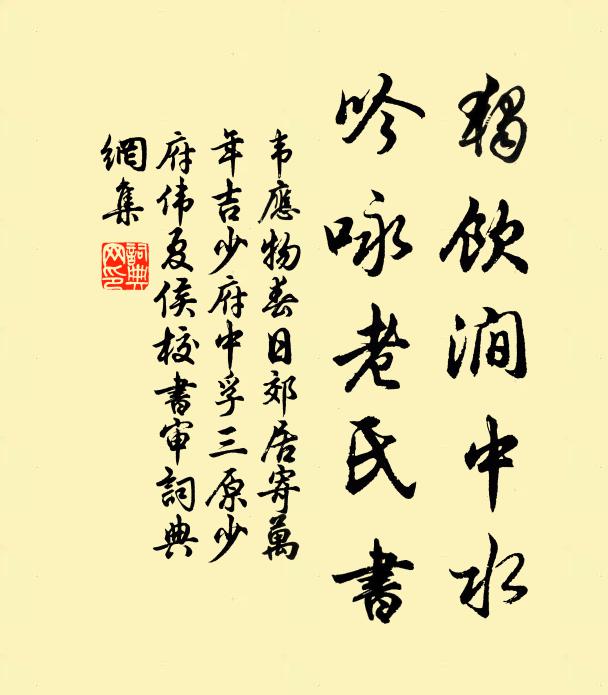 独飲澗中水
吟咏老氏書
韦應物春日郊居寄萬
年吉少府中孚三原少
府伟夏侯校書审詞典
網集
詞典網印